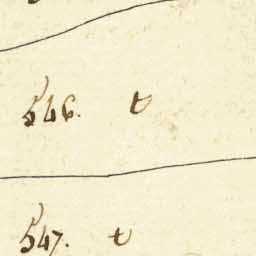 546. t
547. t